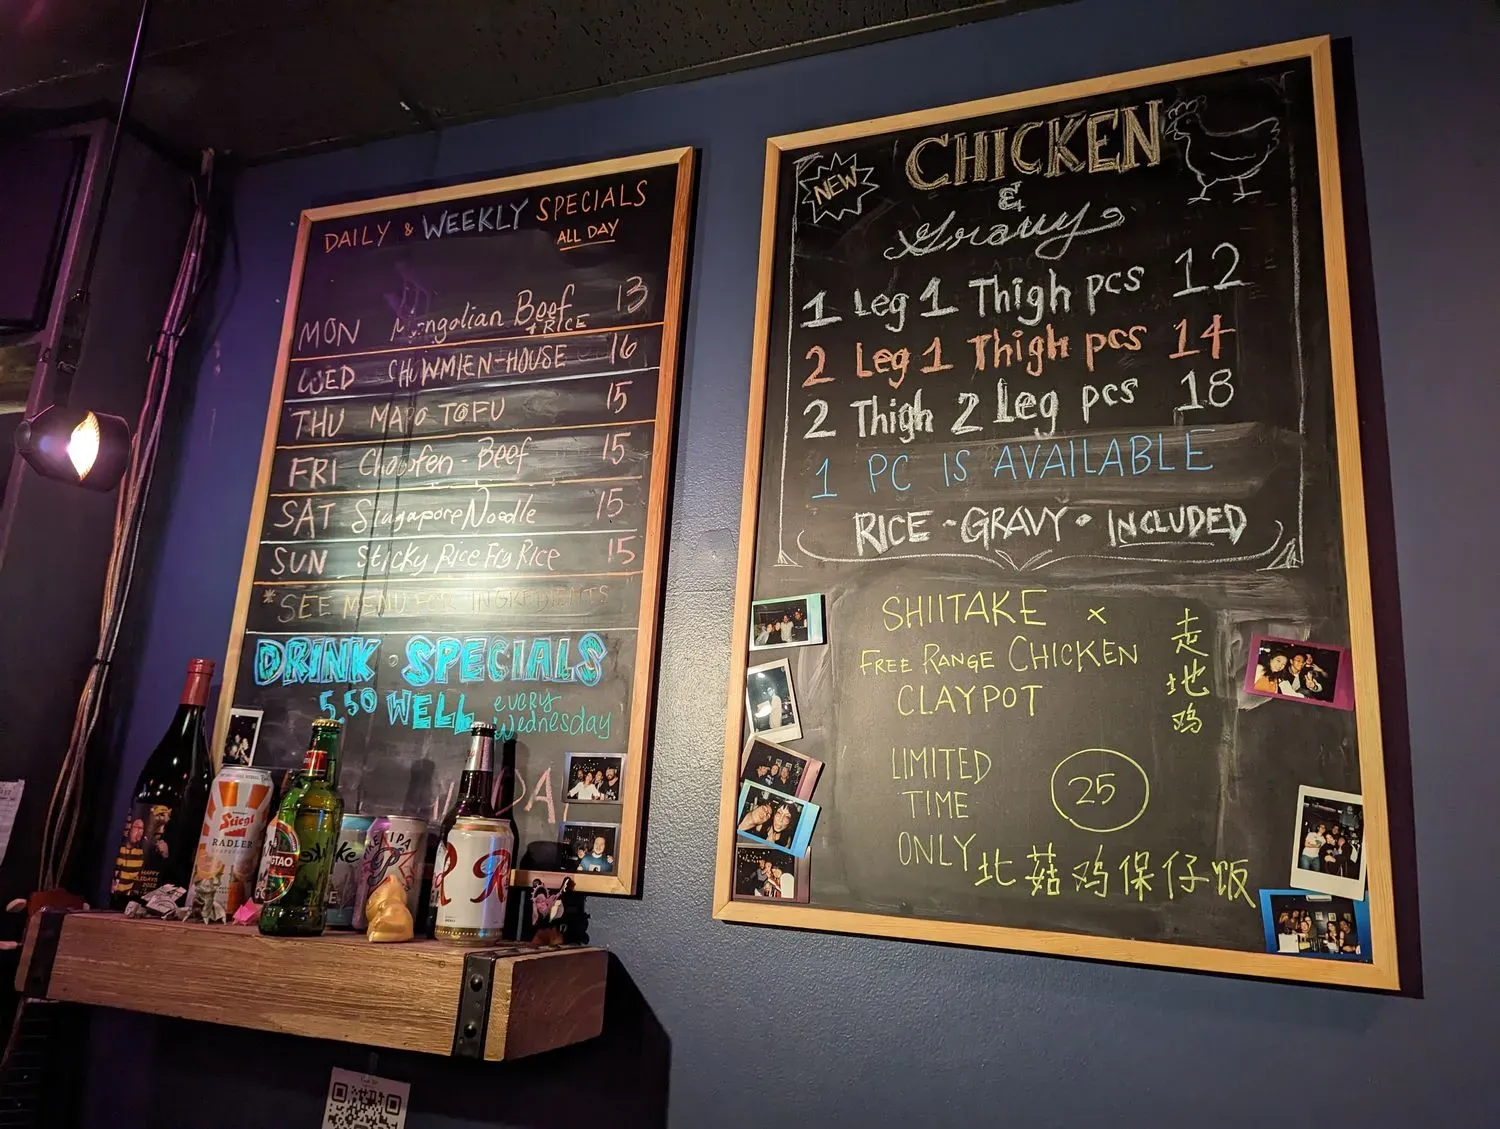 DAILY & WEEKLY SPECIALS
ALL DAY
MON Mongolian Beef 13
+ RICE
WED CHOWMIEN-HOUSE 16
THU MAPO TOFU 15
FRI Chowfen - Beef 15
SAT Singapore Noodle 15
SUN Sticky Rice Fry Rice 15
* SEE MENU FOR INGREDIENTS
DRINK · SPECIALS
5.50 WELL every
Wednesday
NEW
CHICKEN
&
Gravy
1 Leg 1 Thigh pcs 12
2 Leg 1 Thigh pcs 14
2 Thigh 2 Leg pcs 18
1 PC IS AVAILABLE
RICE - GRAVY · INCLUDED
SHIITAKE x
FREE RANGE CHICKEN
CLAYPOT
走地鸡
LIMITED
TIME
ONLY
25
北菇鸡保仔饭
Stiegl
RADLER
IPA
R